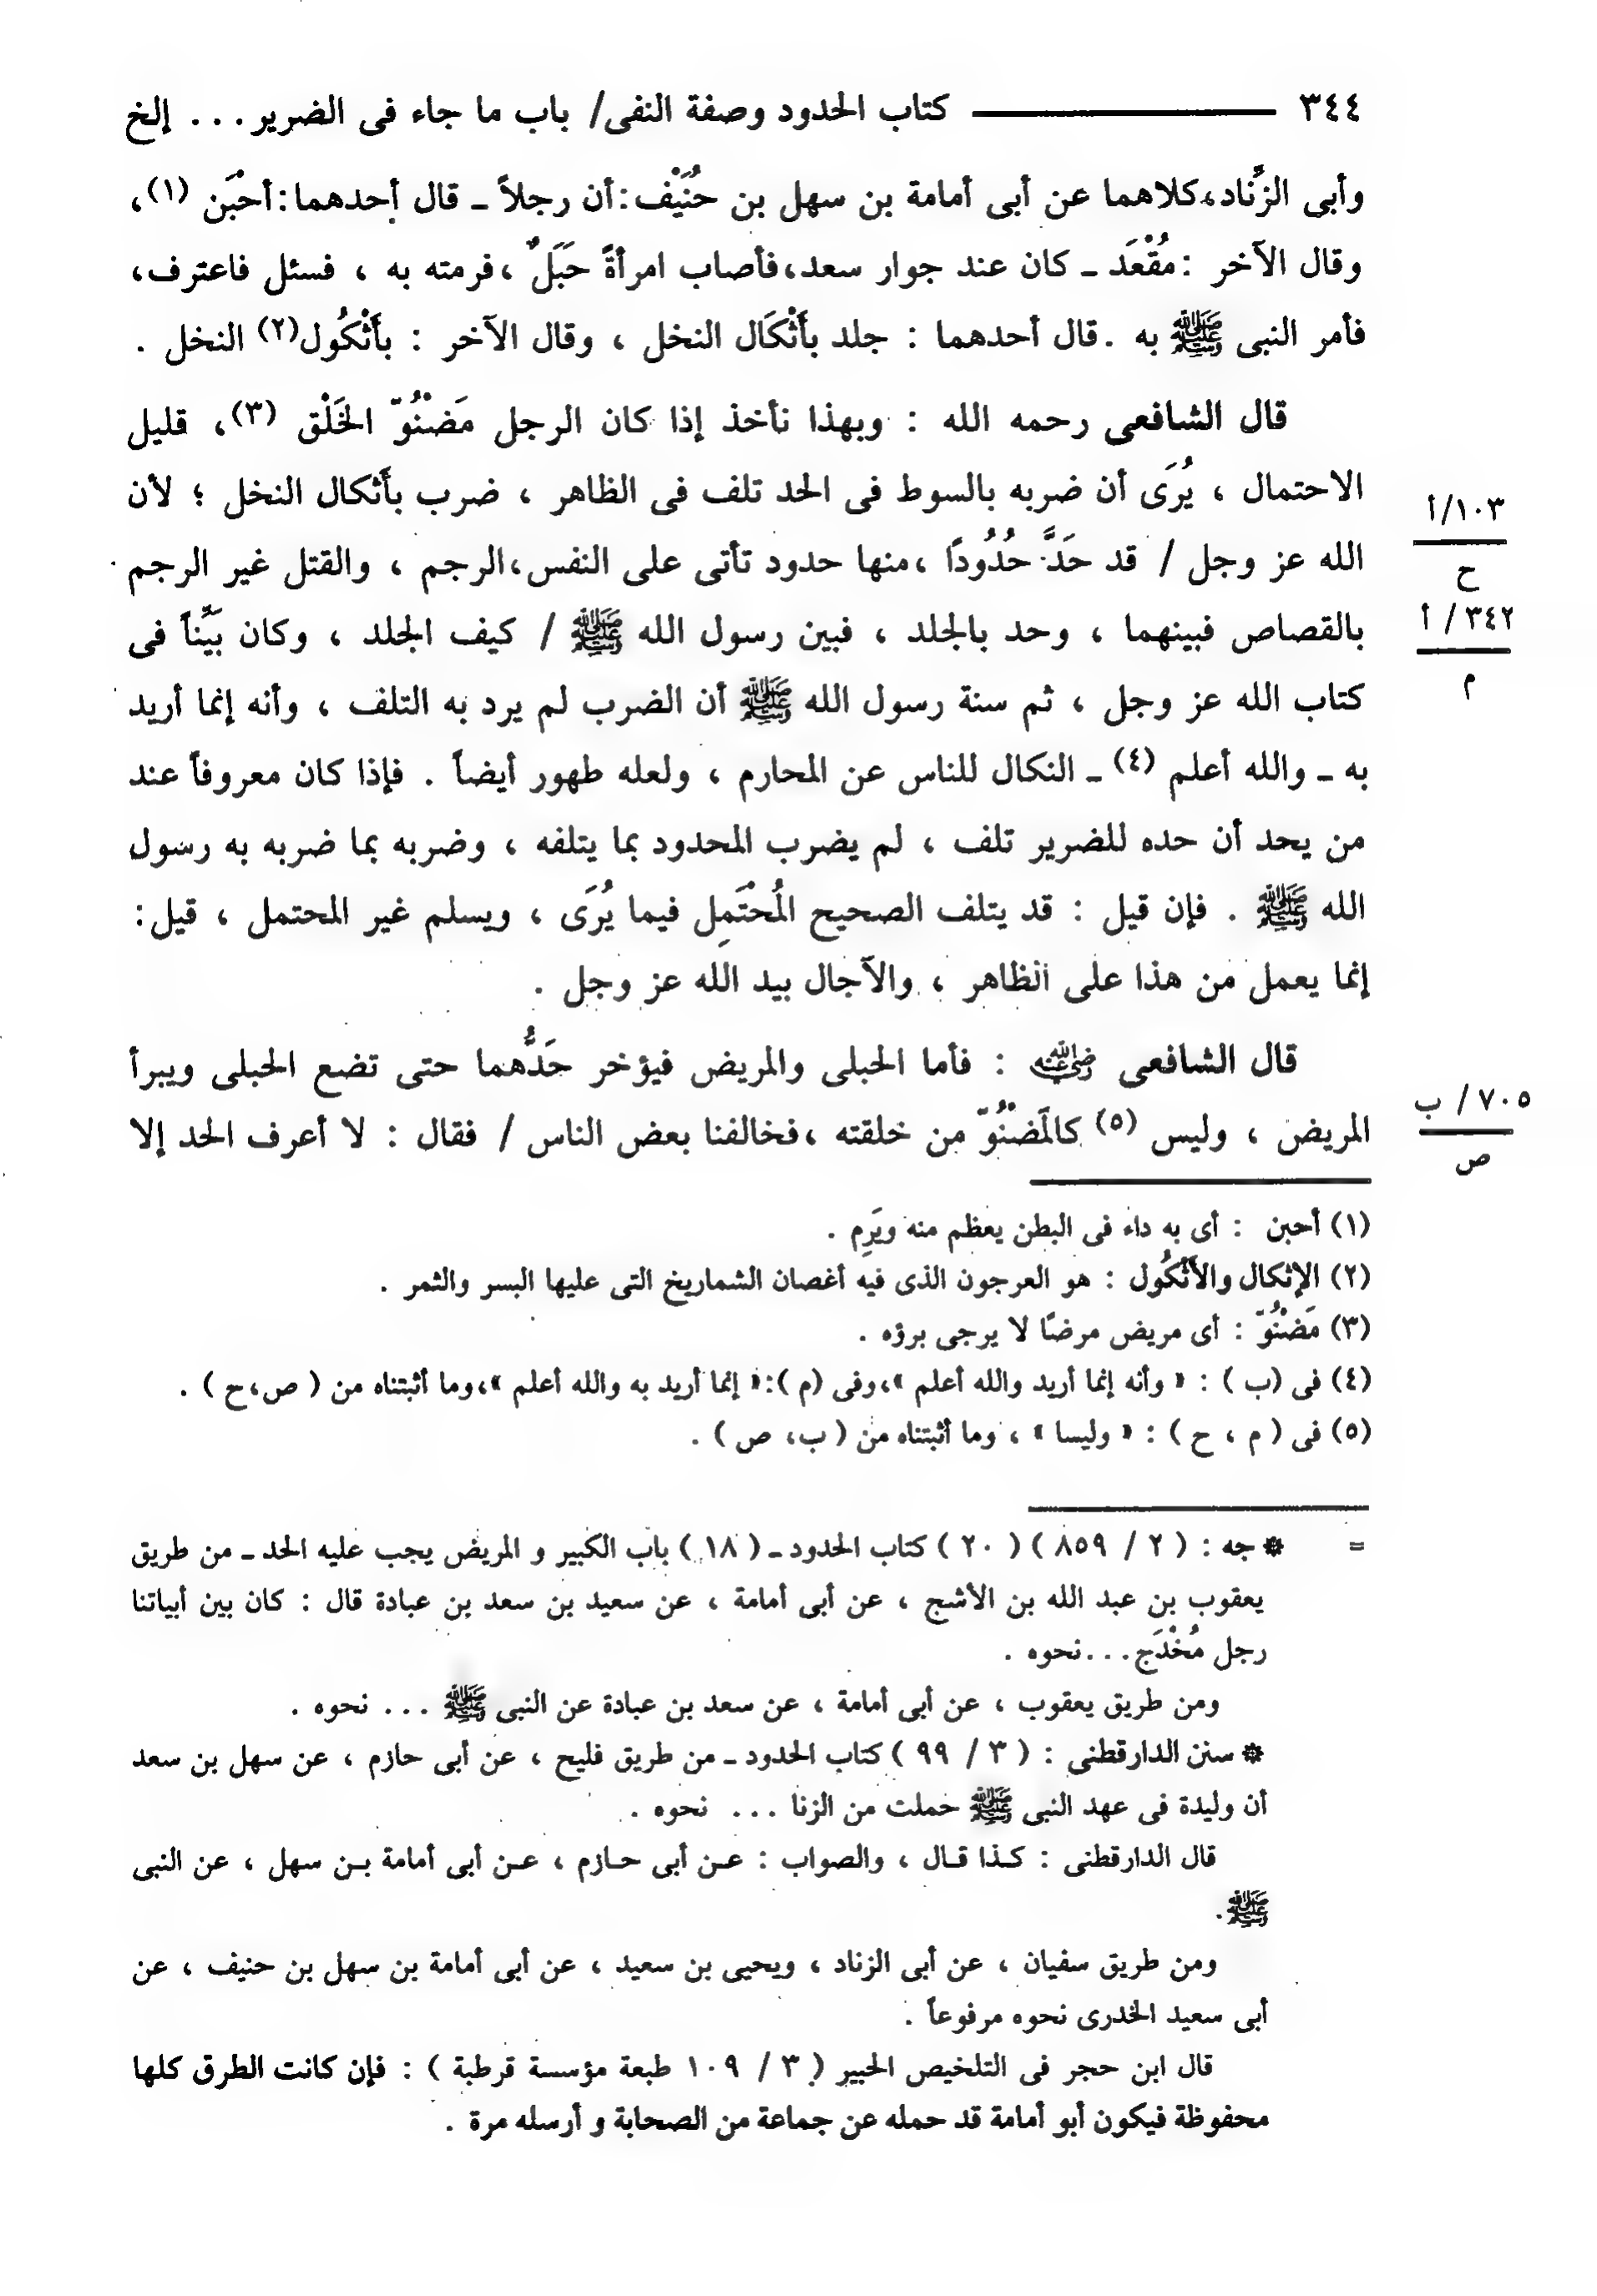 ٣٤٤ ــــــــــ كتاب الحدود وصفة النفى/ باب ما جاء فى الضرير . . . إلخ
وأبى الزِّنَاد، كلاهما عن أبى أمامة بن سهل بن حُنَيْف: أن رجلاً ـ قال أحدهما: أحْبَن (١)،
وقال الآخر : مُقْعَد ـ كان عند جوار سعد، فأصاب امرأةً حَبَلٌ ، فرمته به ، فسئل فاعترف،
فأمر النبى ﷺ به . قال أحدهما : جلد بأَثْكَال النخل ، وقال الآخر : بأَثْكُول(٢) النخل .
قال الشافعى رحمه الله : وبهذا نأخذ إذا كان الرجل مَضْنُوّ الخَلْق (٣)، قليل
الاحتمال ، يُرَى أن ضربه بالسوط فى الحد تلف فى الظاهر ، ضرب بأَثكال النخل ؛ لأن
١٠٣/أ
ح
الله عز وجل / قد حَدَّ حُدُودًا ، منها حدود تأتى على النفس، الرجم ، والقتل غير الرجم
بالقصاص فبينهما ، وحد بالجلد ، فبين رسول الله ﷺ / كيف الجلد ، وكان بَيِّناً فى
٣٤٢ / أ
م
كتاب الله عز وجل ، ثم سنة رسول الله ﷺ أن الضرب لم يرد به التلف ، وأنه إنما أريد
به ـ والله أعلم (٤) ـ النكال للناس عن المحارم ، ولعله طهور أيضاً . فإذا كان معروفاً عند
من يحد أن حده للضرير تلف ، لم يضرب المحدود بما يتلفه ، وضربه بما ضربه به رسول
الله ﷺ . فإن قيل : قد يتلف الصحيح المُحْتَمِل فيما يُرَى ، ويسلم غير المحتمل ، قيل:
إنما يعمل من هذا على الظاهر ، والآجال بيد الله عز وجل .
قال الشافعى رضي الله عنه : فأما الحبلى والمريض فيؤخر حَدُّهما حتى تضع الحبلى ويبرأ
المريض ، وليس (٥) كالمَضْنُوّ من خلقته ، فخالفنا بعض الناس / فقال : لا أعرف الحد إلا
٧٠٥ / ب
ص
(١) أحبن : أى به داء فى البطن يعظم منه ويَرِم .
(٢) الإثكال والأثْكُول : هو العرجون الذى فيه أغصان الشماريخ التى عليها البسر والثمر .
(٣) مَضْنُوّ : أى مريض مرضًا لا يرجى برؤه .
(٤) فى (ب ) : « وأنه إنما أريد والله أعلم »، وفى (م ): « إنما أريد به والله أعلم »، وما أثبتناه من ( ص، ح ) .
(٥) فى ( م ، ح ) : « وليسا » ، وما أثبتناه من ( ب، ص ) .
= * جه : ( ٢ / ٨٥٩ ) ( ٢٠ ) كتاب الحدود ـ ( ١٨ ) باب الكبير و المريض يجب عليه الحد ـ من طريق
يعقوب بن عبد الله بن الأشج ، عن أبى أمامة ، عن سعيد بن سعد بن عبادة قال : كان بين أبياتنا
رجل مُخْدَج . . . نحوه .
ومن طريق يعقوب ، عن أبى أمامة ، عن سعد بن عبادة عن النبى ﷺ . . . نحوه .
* سنن الدارقطنى : ( ٣ / ٩٩ ) كتاب الحدود ـ من طريق فليح ، عن أبى حازم ، عن سهل بن سعد
أن وليدة فى عهد النبى ﷺ حملت من الزنا . . . نحوه .
قال الدارقطنى : كـذا قـال ، والصواب : عـن أبى حـازم ، عـن أبى أمامة بـن سهل ، عن النبى
ﷺ .
ومن طريق سفيان ، عن أبى الزناد ، ويحيى بن سعيد ، عن أبى أمامة بن سهل بن حنيف ، عن
أبى سعيد الخدرى نحوه مرفوعاً .
قال ابن حجر فى التلخيص الحبير ( ٣ / ١٠٩ طبعة مؤسسة قرطبة ) : فإن كانت الطرق كلها
محفوظة فيكون أبو أمامة قد حمله عن جماعة من الصحابة و أرسله مرة .